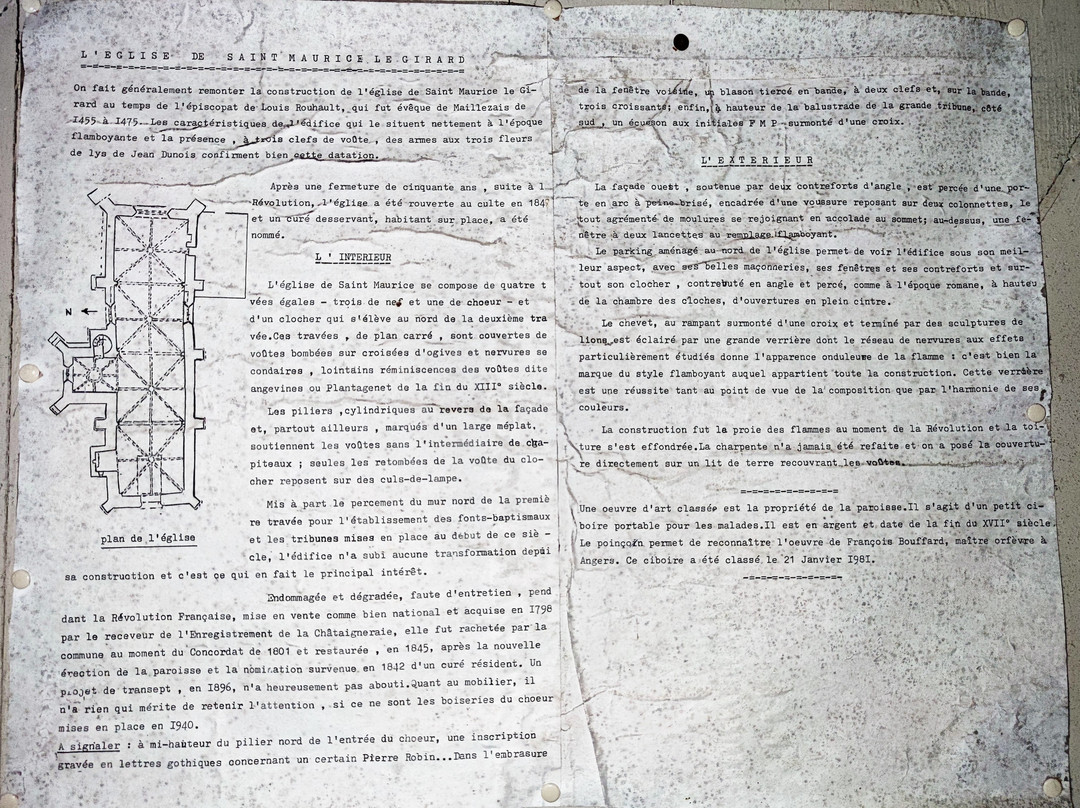 L'EGLISE DE SAINT MAURICE LE GIRARD
On fait généralement remonter la construction de l'église de Saint Maurice le Gi-
rard au temps de l'épiscopat de Louis Rouhault, qui fut évêque de Maillezais de
I455 à I475. Les caractéristiques de l'édifice qui le situent nettement à l'époque
flamboyante et la présence , à trois clefs de voûte , des armes aux trois fleurs
de lys de Jean Dunois confirment bien cette datation.
Après une fermeture de cinquante ans , suite à l
Révolution, l'église a été rouverte au culte en 184
et un curé desservant, habitant sur place, a été
nommé.
L ' INTERIEUR
L'église de Saint Maurice se compose de quatre t
vées égales - trois de nef et une de choeur - et
d'un clocher qui s'élève au nord de la deuxième tra
vée.Ces travées , de plan carré , sont couvertes de
voûtes bombées sur croisées d'ogives et nervures se
condaires , lointains réminiscences des voûtes dite
angevines ou Plantagenet de la fin du XIII° siècle.
Les piliers ,cylindriques au revers de la façade
et, partout ailleurs , marqués d'un large méplat,
soutiennent les voûtes sans l'intermédiaire de cha-
piteaux ; seules les retombées de la voûte du clo-
cher reposent sur des culs-de-lampe.
Mis à part le percement du mur nord de la premiè
re travée pour l'établissement des fonts-baptismaux
et les tribunes mises en place au début de ce siè -
cle, l'édifice n'a subi aucune transformation depui
sa construction et c'est ce qui en fait le principal intérêt.
N
plan de l'église
Endommagée et dégradée, faute d'entretien , pend
dant la Révolution Française, mise en vente comme bien national et acquise en I798
par le receveur de l'Enregistrement de la Châtaigneraie, elle fut rachetée par la
commune au moment du Concordat de 1801 et restaurée , en 1845, après la nouvelle
érection de la paroisse et la nomination survenue en 1842 d'un curé résident. Un
projet de transept , en I896, n'a heureusement pas abouti.Quant au mobilier, il
n'a rien qui mérite de retenir l'attention , si ce ne sont les boiseries du choeur
mises en place en I940.
A signaler : à mi-hauteur du pilier nord de l'entrée du choeur, une inscription
gravée en lettres gothiques concernant un certain Pierre Robin...Dans l'embrasure
de la fenêtre voisine, un blason tiercé en bande, à deux clefs et, sur la bande,
trois croissants; enfin, à hauteur de la balustrade de la grande tribune, côté
sud , un écusson aux initiales F M P surmonté d'une croix.
L'EXTERIEUR
La façade ouest , soutenue par deux contreforts d'angle , est percée d'une por-
te en arc à peine brisé, encadrée d'une voussure reposant sur deux colonnettes, le
tout agrémenté de moulures se rejoignant en accolade au sommet; au-dessus, une fe-
nêtre à deux lancettes au remplage flamboyant.
Le parking aménagé au nord de l'église permet de voir l'édifice sous son meil-
leur aspect, avec ses belles maçonneries, ses fenêtres et ses contreforts et sur-
tout son clocher , contrebuté en angle et percé, comme à l'époque romane, à hauteu
de la chambre des cloches, d'ouvertures en plein cintre.
Le chevet, au rampant surmonté d'une croix et terminé par des sculptures de
lions est éclairé par une grande verrière dont le réseau de nervures aux effets
particulièrement étudiés donne l'apparence onduleuse de la flamme : c'est bien la
marque du style flamboyant auquel appartient toute la construction. Cette verrière
est une réussite tant au point de vue de la composition que par l'harmonie de ses
couleurs.
La construction fut la proie des flammes au moment de la Révolution et la toi-
ture s'est effondrée.La charpente n'a jamais été refaite et on a posé la couvertu-
re directement sur un lit de terre recouvrant les voûtes.
Une oeuvre d'art classée est la propriété de la paroisse.Il s'agit d'un petit ci-
boire portable pour les malades.Il est en argent et date de la fin du XVII° siècle.
Le poinçon permet de reconnaître l'oeuvre de François Bouffard, maître orfèvre à
Angers. Ce ciboire a été classé le 21 Janvier I98I.